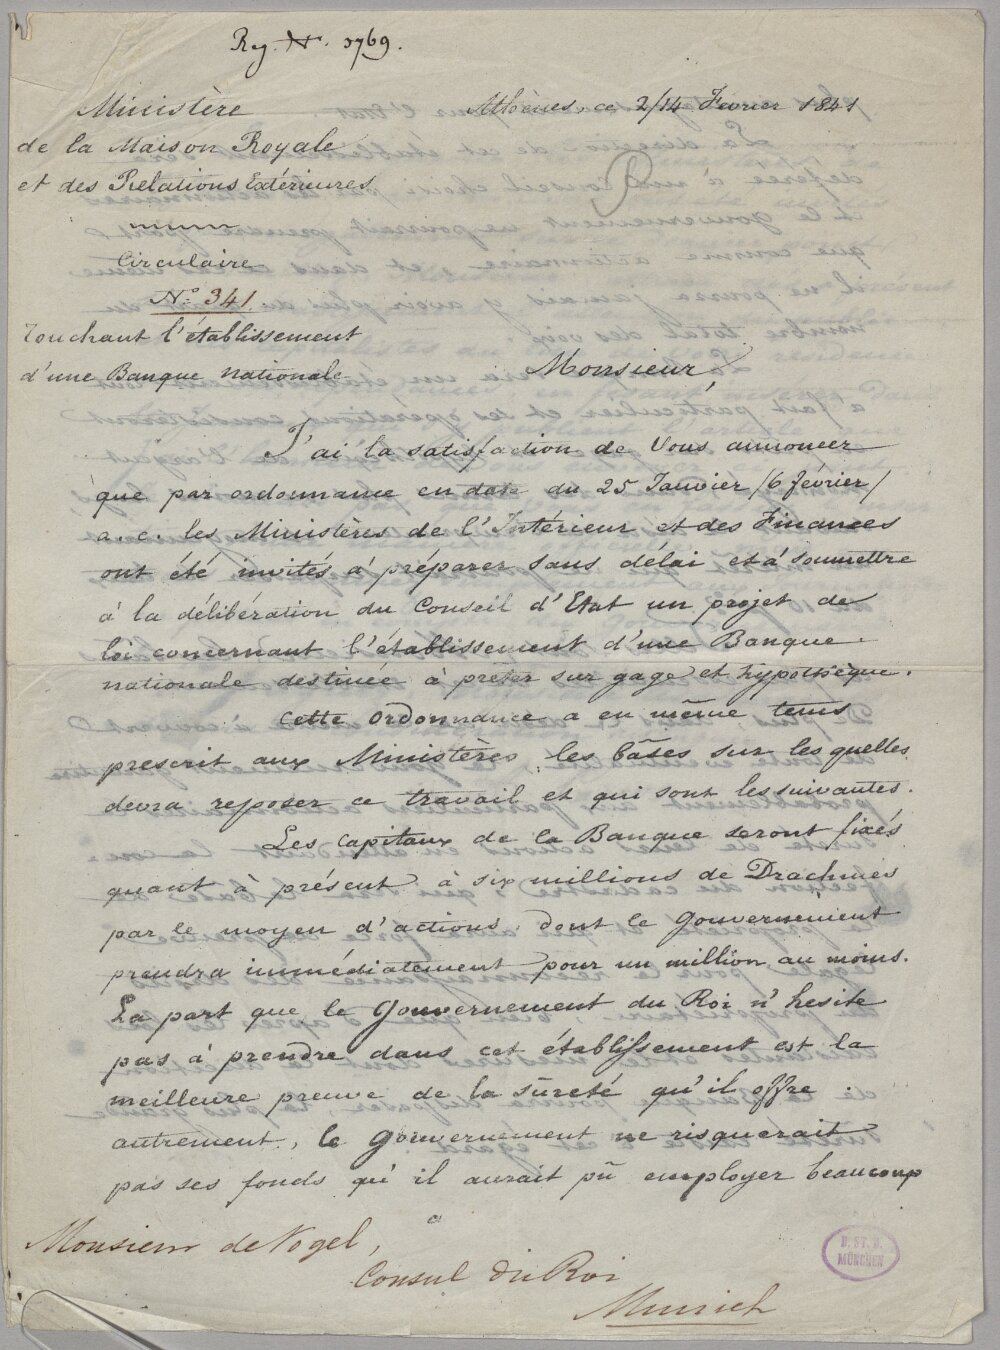 Reg. Nr. 3769.
Ministère
de la Maison Royale
et des Relations Extérieures
Circulaire
No: 341
Touchant l'établissement
d'une Banque nationale
Athènes, ce 2/14 Fevrier 1841
Monsieur,
J'ai la satisfaction de Vous annoncer
que par ordonnance en date du 25 Janvier /6 février/
a. c. les Ministères de l'Intérieur et des Finances
ont été invités à préparer sans délai et à soumettre
à la délibération du Conseil d'Etat un projet de
loi concernant l'établissement d'une Banque
nationale destinée à prêter sur gage et hypothèque.
Cette ordonnance a en même tems
prescrit aux Ministères les bâses sur lesquelles
devra reposer ce travail et qui sont les suivantes.
Les capitaux de la Banque seront fixés
quant à présent à six millions de Drachmes
par le moyen d'actions, dont le Gouvernement
prendra immédiatement pour un million au moins.
La part que le Gouvernement du Roi n'hesite
pas à prendre dans cet établissement est la
meilleure preuve de la sûreté qu'il offre.
autrement, le Gouvernement ne risquerait
pas ses fonds qu'il aurait pû employer beaucoup
Monsieur de Vogel,
Consul du Roi
Munich
B. ST. B.
MÜNCHEN